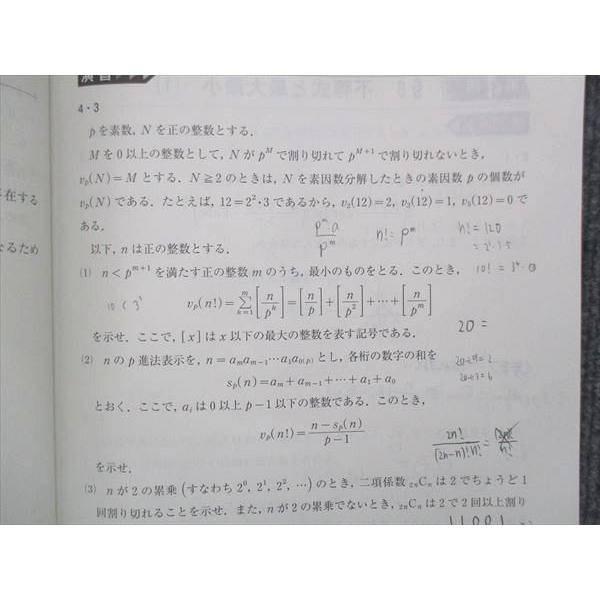 演習
§9 不等式と最大最小 (1)
4・3
pを素数, Nを正の整数とする.
Mを0以上の整数として, Nが p^M で割り切れて p^{M+1} で割り切れないとき,
v_p(N)=M とする. N≧2のときは, Nを素因数分解したときの素因数 p の個数が
v_p(N)である. たとえば, 12=2²・3であるから, v_2(12)=2, v_3(12)=1, v_5(12)=0で
ある.
p^m・a
p^m
n!=p^m
n!=120
以下, nは正の整数とする.
(1) n<p^{m+1} を満たす正の整数 m のうち, 最小のものをとる. このとき,
10<3³
v_p(n!)=Σ_{k=1}^{m}[n/p^k]=[n/p]+[n/p²]+⋯+[n/p^m]
を示せ. ここで, [x]はx以下の最大の整数を表す記号である.
20=
(2) nのp進法表示を, n=a_m a_{m-1}⋯a_1 a_{0(p)} とし, 各桁の数字の和を
s_p(n)=a_m+a_{m-1}+⋯+a_1+a_0
とおく. ここで, a_i は0以上 p-1 以下の整数である. このとき,
v_p(n!)=(n-s_p(n))/(p-1)
2n!
(2n-n)!n!
を示せ.
(3) nが2の累乗(すなわち 2⁰, 2¹, 2², ⋯)のとき, 二項係数 _{2n}C_n は2でちょうど1
回割り切れることを示せ. また, nが2の累乗でないとき, _{2n}C_n は2で2回以上割り
11001
在する
なるため